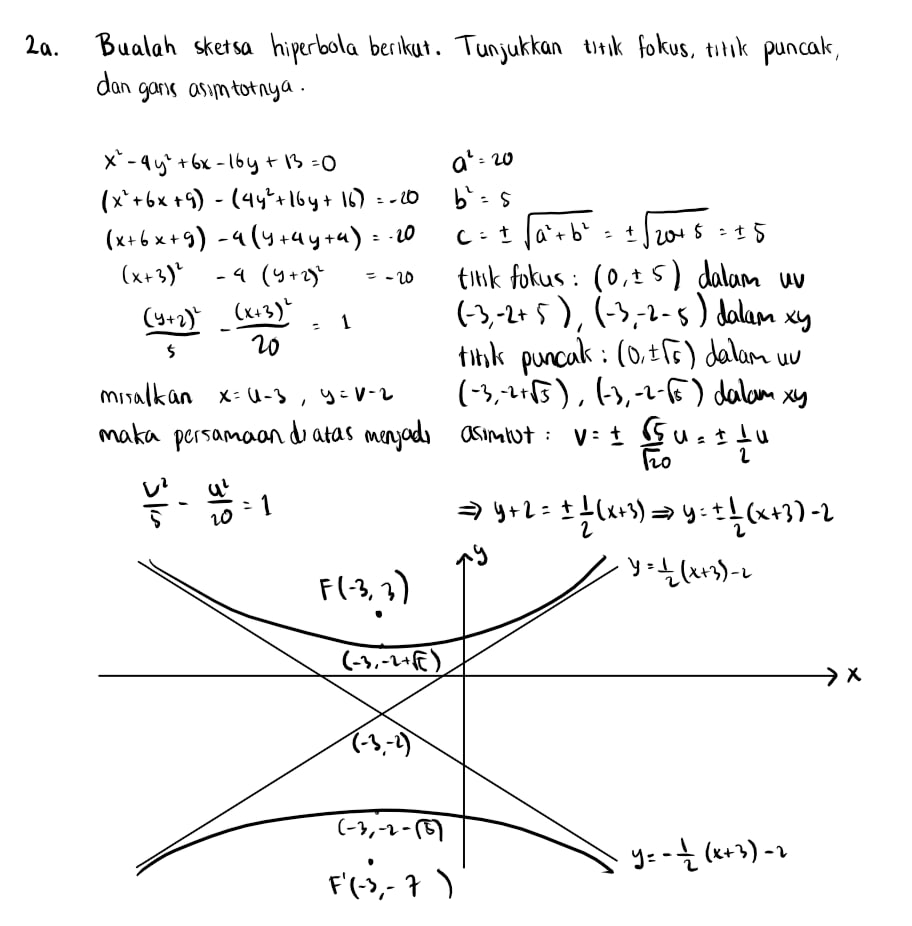 2a. Bualah sketsa hiperbola berikut. Tunjukkan titik fokus, titik puncak,
dan garis asimtotnya.
x² - 4y² + 6x - 16y + 13 = 0
(x² + 6x + 9) - (4y² + 16y + 16) = -20
(x + 6x + 9) - 4(y + 4y + 4) = -20
(x+3)² - 4 (y+2)² = -20
(y+2)²/5 - (x+3)²/20 = 1
misalkan x = u-3 , y = v-2
maka persamaan di atas menjadi
v²/5 - u²/20 = 1
a² = 20
b² = 5
c = ± √(a² + b²) = ± √(20 + 5) = ± 5
titik fokus : (0, ± 5) dalam uv
(-3, -2+5), (-3, -2-5) dalam xy
titik puncak : (0, ±√5) dalam uv
(-3, -2+√5), (-3, -2-√5) dalam xy
asimtot : v = ± √5/√20 u = ± 1/2 u
⇒ y+2 = ± 1/2 (x+3) ⇒ y = ± 1/2 (x+3) - 2
y
F(-3, 3)
y = 1/2 (x+3) - 2
(-3, -2+√5)
x
(-3, -2)
(-3, -2-√5)
y = - 1/2 (x+3) - 2
F'(-3, -7)